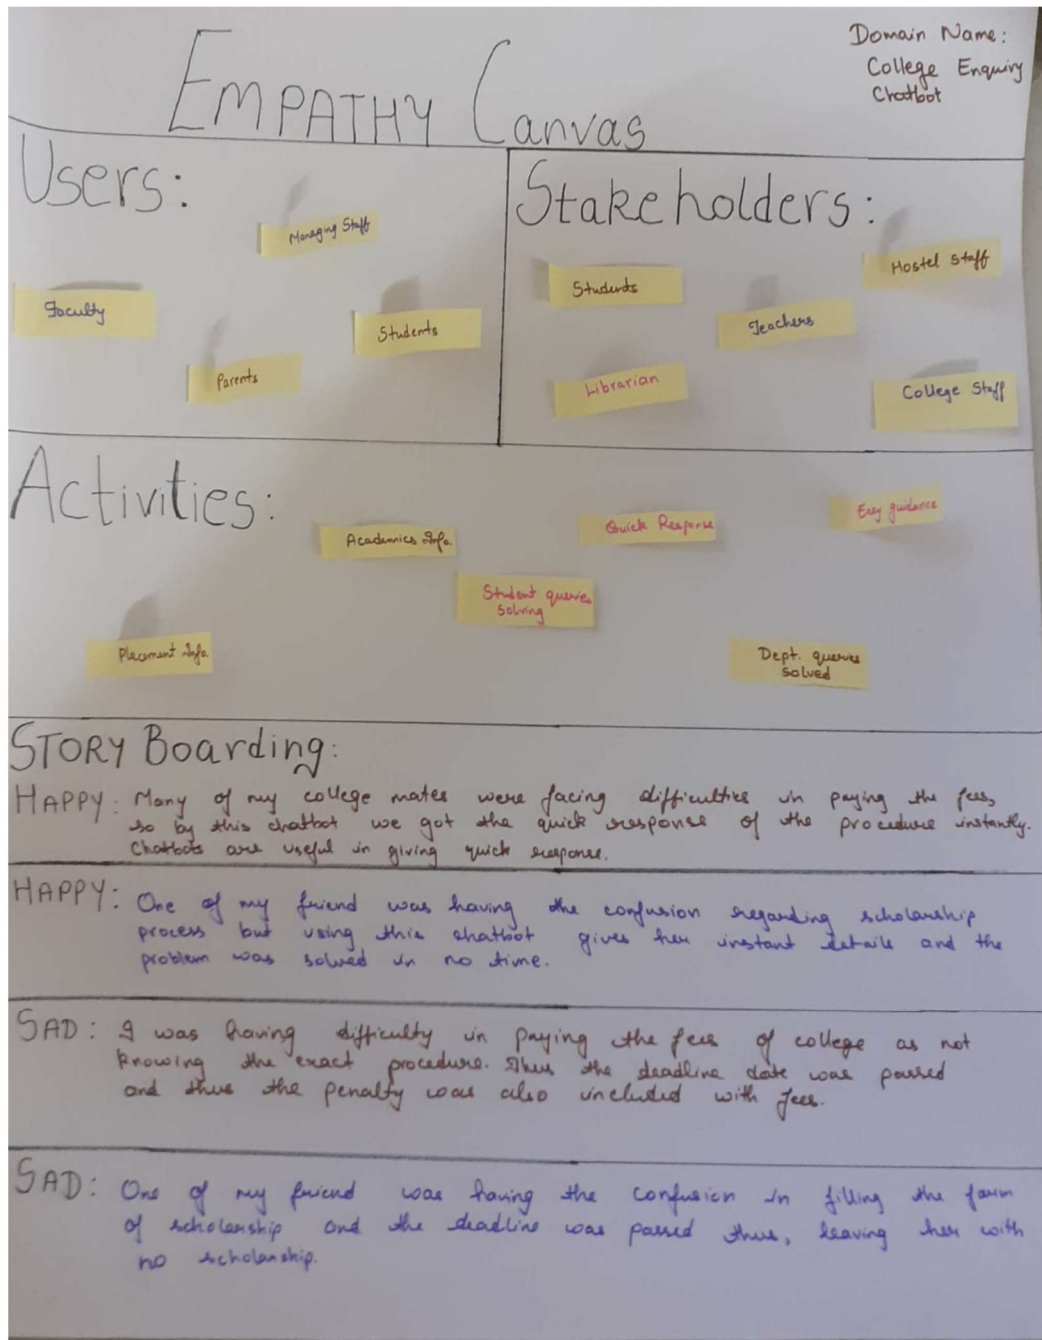 Domain Name:
College Enquiry
Chatbot
EMPATHY Canvas
Users:
Managing Staff
Faculty
Students
Parents
Stakeholders:
Hostel staff
Students
Teachers
Librarian
College Staff
Activities:
Easy guidance
Quick Response
Academics Info.
Student queries
solving
Placement Info.
Dept. queries
solved
STORY Boarding:
HAPPY: Many of my college mates were facing difficulties in paying the fees,
so by this chatbot we got the quick response of the procedure instantly.
Chatbots are useful in giving quick response.
HAPPY: One of my friend was having the confusion regarding scholarship
process but using this chatbot gives her instant details and the
problem was solved in no time.
SAD: I was having difficulty in paying the fees of college as not
knowing the exact procedure. Thus the deadline date was passed
and thus the penalty was also included with fees.
SAD: One of my friend was having the confusion in filling the form
of scholarship and the deadline was passed thus, leaving her with
no scholarship.